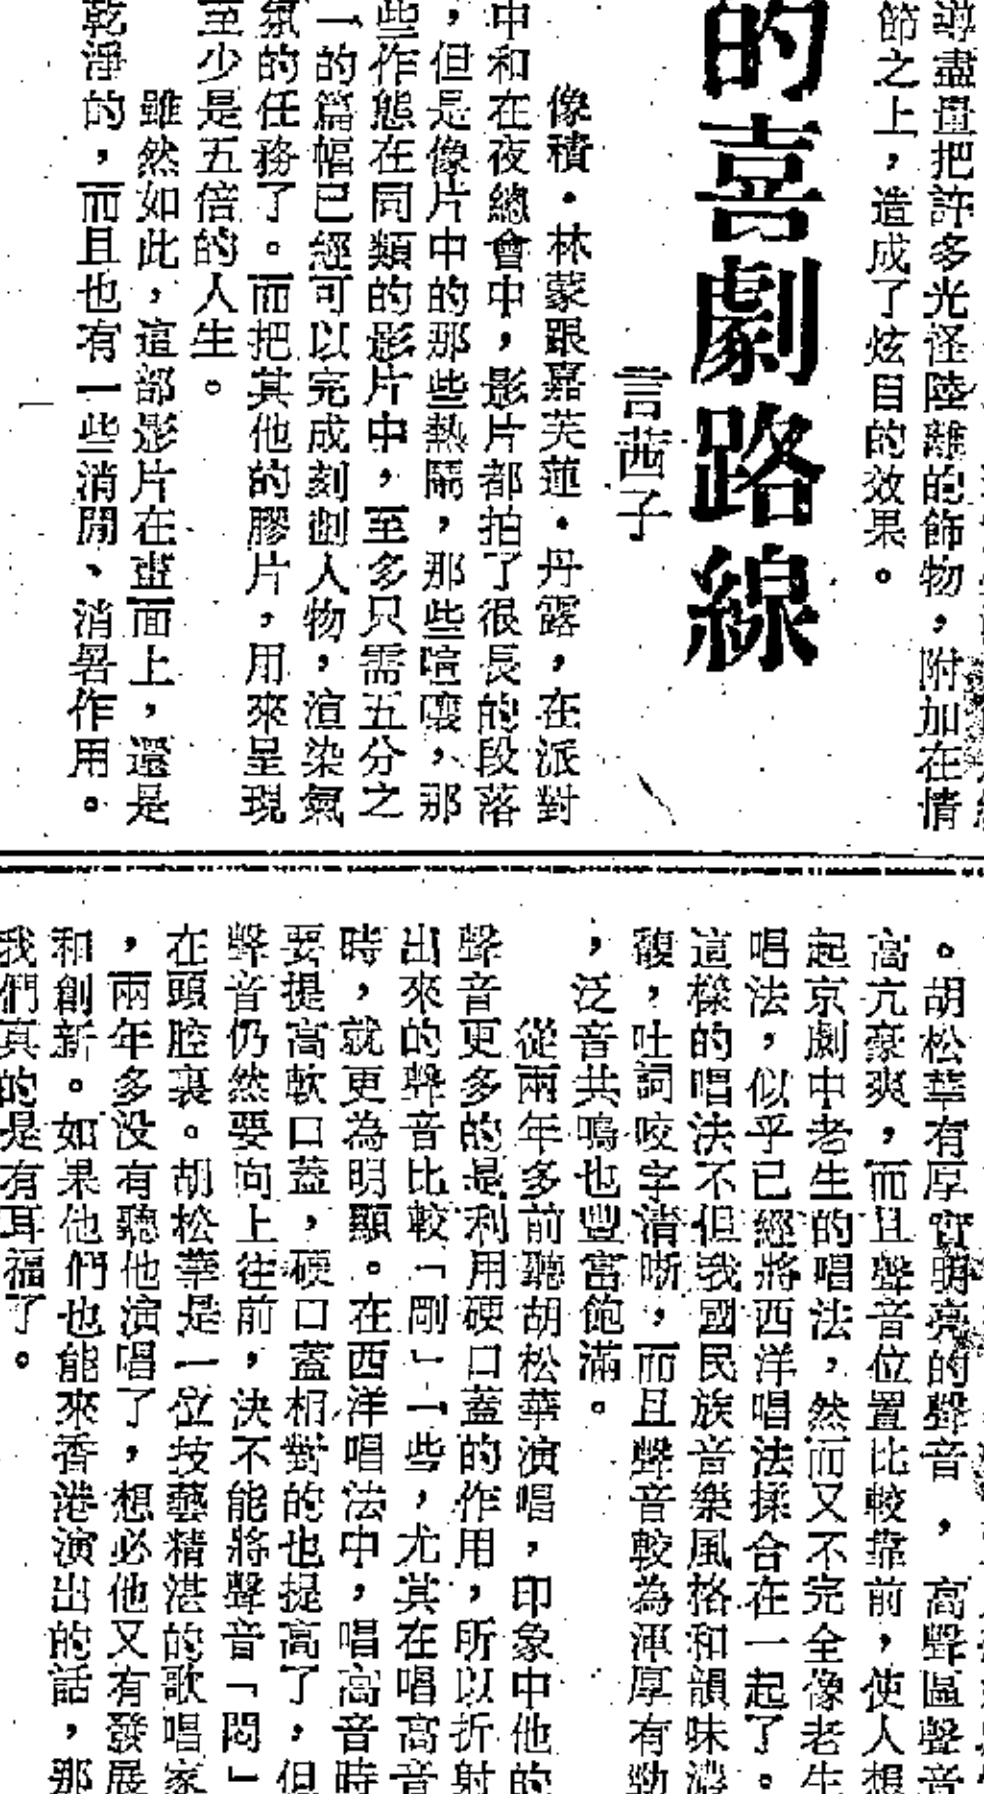 導盡量把許多光怪陸離的飾物，附加在情
節之上，造成了炫目的效果。
的喜劇路線
言茜子
像積·林蒙跟嘉芙蓮·丹露，在派對
中和在夜總會中，影片都拍了很長的段落
，但是像片中的那些熱鬧，那些喧嚷，那
些作態在同類的影片中，至多只需五分之
一的篇幅已經可以完成刻劃人物，渲染氣
氛的任務了。而把其他的膠片，用來呈現
至少是五倍的人生。
雖然如此，這部影片在畫面上，還是
乾淨的，而且也有一些消閒、消暑作用。
。胡松華有厚實明亮的聲音，高聲區聲音
高亢豪爽，而且聲音位置比較靠前，使人想
起京劇中老生的唱法，然而又不完全像老生
唱法，似乎已經將西洋唱法揉合在一起了。
這樣的唱法不但我國民族音樂風格和韻味濃
馥，吐詞咬字清晰，而且聲音較為渾厚有勁
，泛音共鳴也豐富飽滿。
從兩年多前聽胡松華演唱，印象中他的
聲音更多的是利用硬口蓋的作用，所以折射
出來的聲音比較「剛」一些，尤其在唱高音
時，就更為明顯。在西洋唱法中，唱高音時
要提高軟口蓋，硬口蓋相對的也提高了，但
聲音仍然要向上往前，決不能將聲音「悶」
在頭腔裏。胡松華是一位技藝精湛的歌唱家
，兩年多没有聽他演唱了，想必他又有發展
和創新。如果他們也能來香港演出的話，那
我們真的是有耳福了。